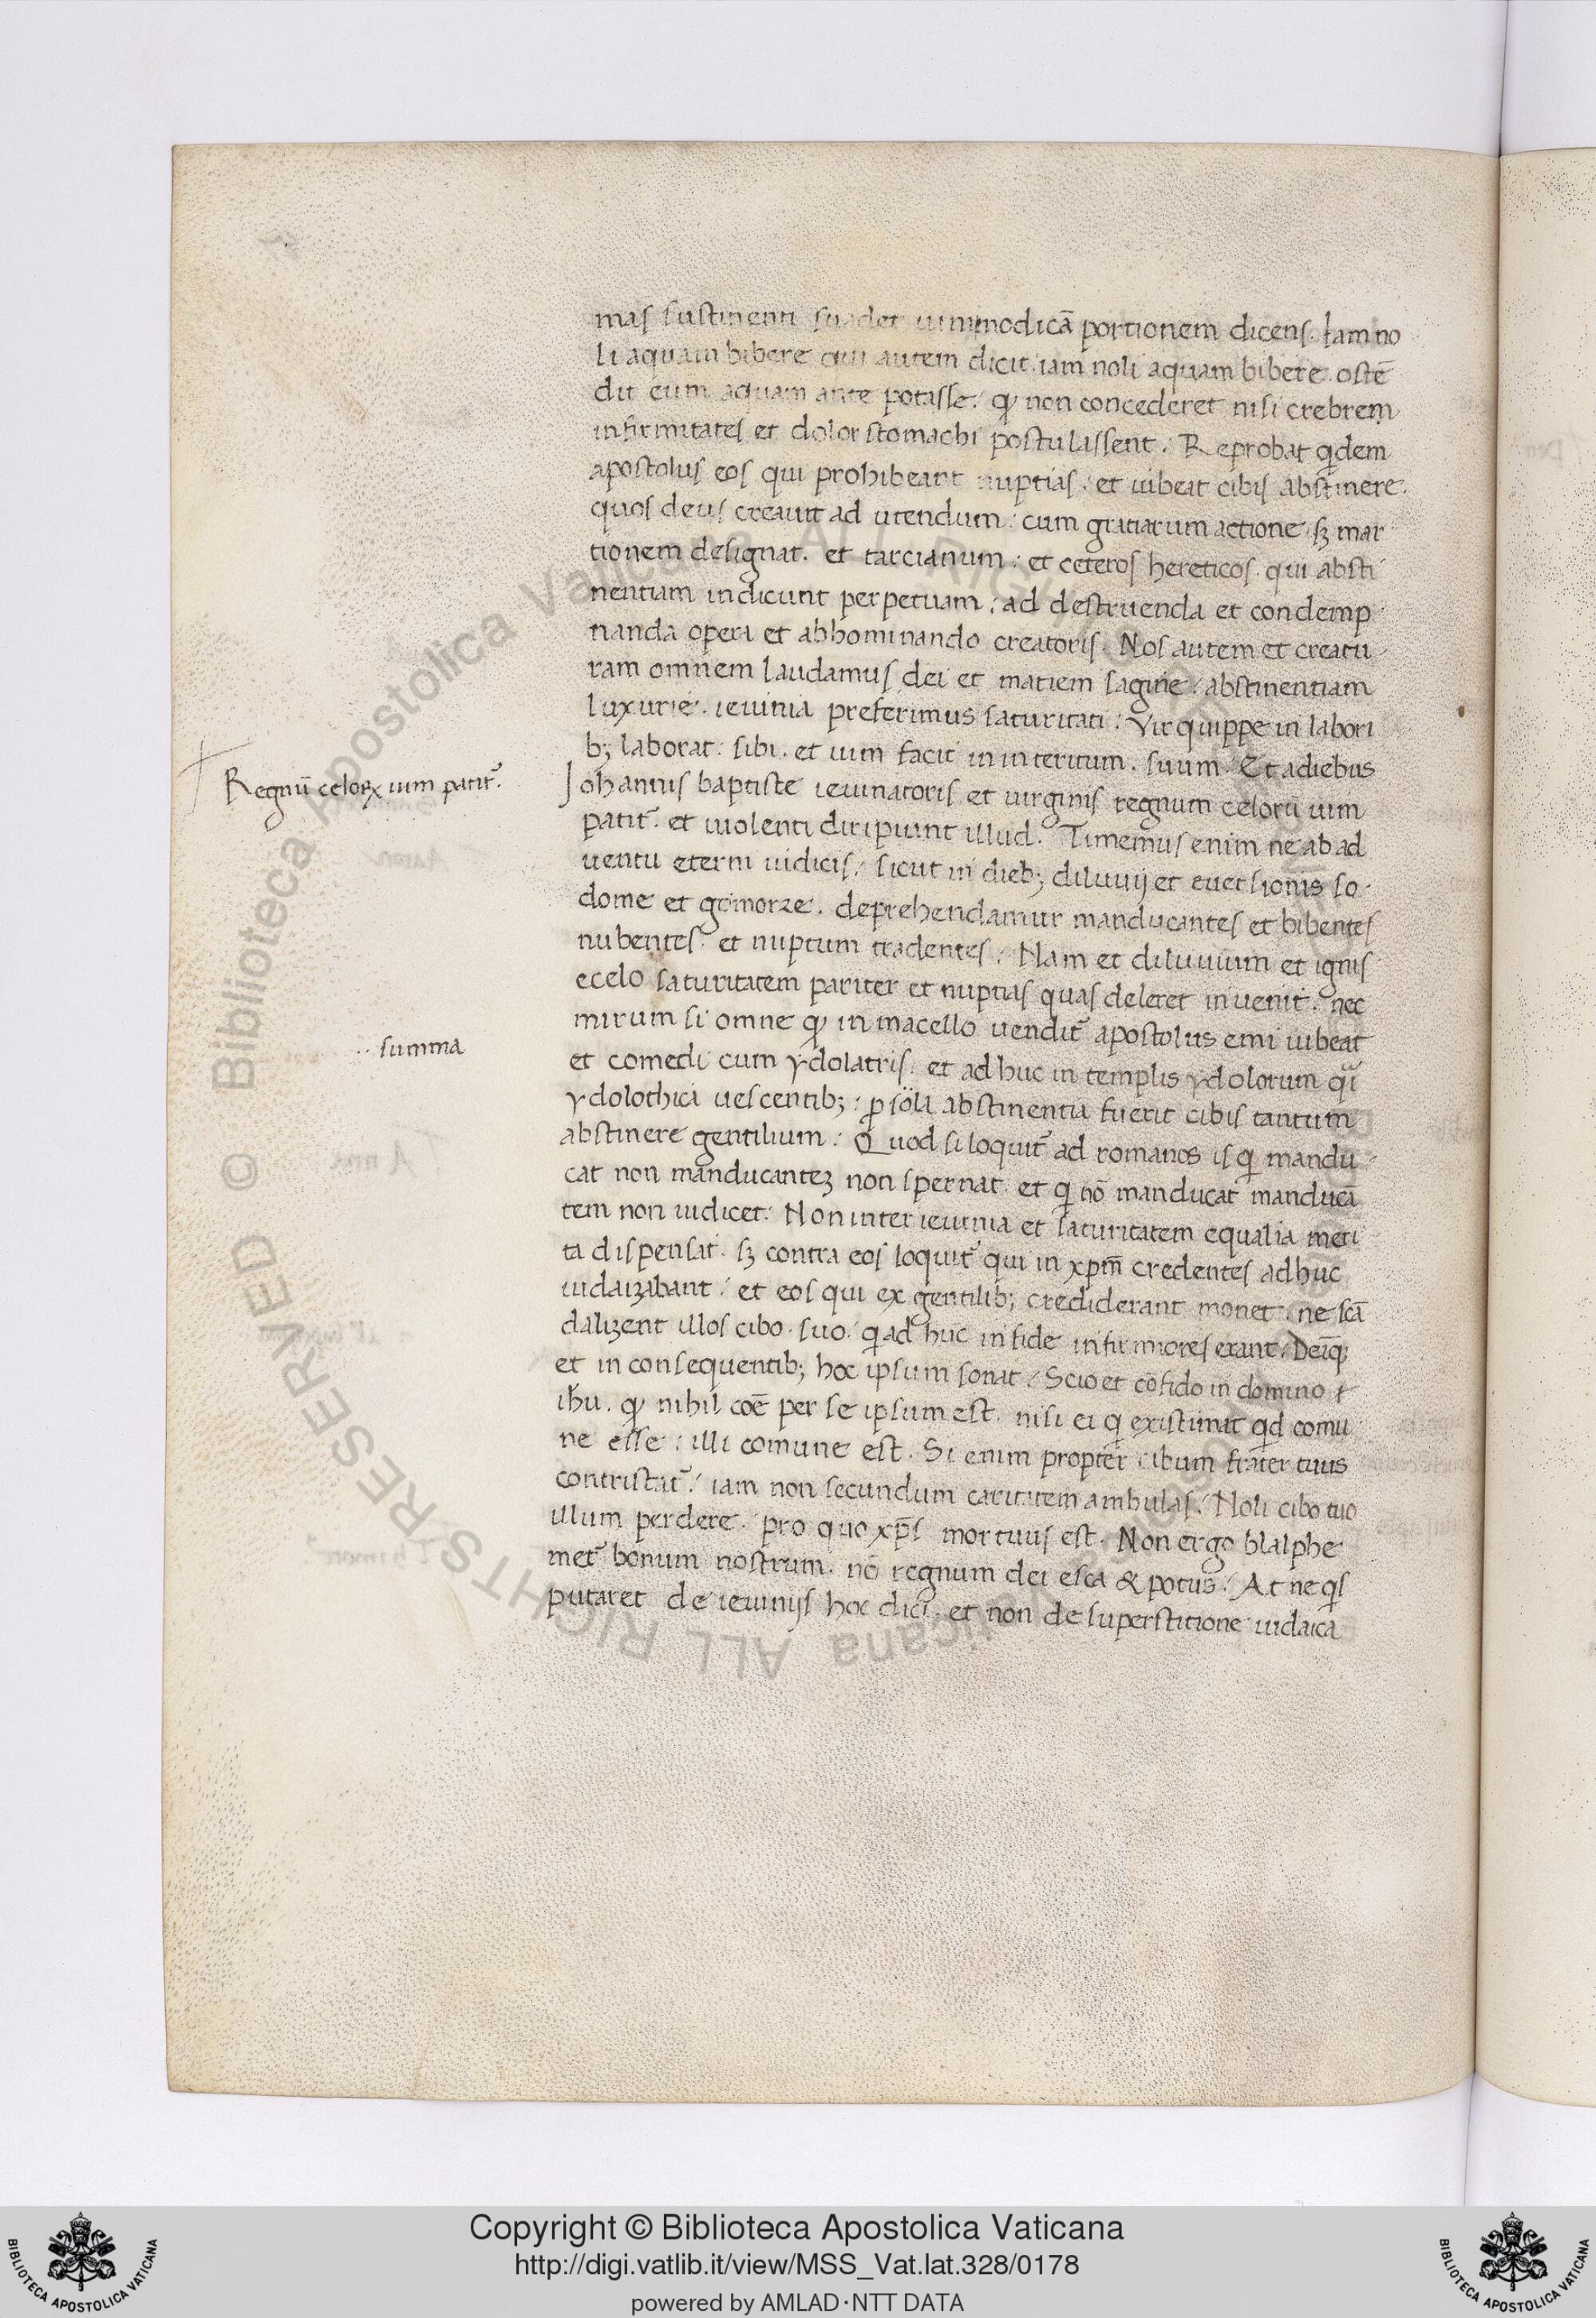 mas sustinenti suadet uini modicā portionem dicens. Iam no
li aquam bibere qui autem dicit. iam noli aquam bibere. ostē
dit eum aquam ante potasse. qđ non concederet nisi crebrem
infirmitates et dolor stomachi postulassent. Reprobat qidem
apostolus eos qui prohibeant nuptias. et iubeat cibis abstinere.
quos deus creauit ad utendum. cum gratiarum actione. sꝫ mar
tionem designat. et tarcianum. et ceteros hereticos. qui absti
nentiam indicunt perpetuam. ad destruenda et condemp
nanda opera et abhominando creatoris. Nos autem et creatu
ram omnem laudamus dei et matiem sagine. abstinentiam
luxurie. ieiunia preferimus saturitati. Vir quippe in labori
bꝫ laborat. sibi. et uim facit in interitum. suum. Et a diebus
Regnū celoꝝ uim patit᷑.
Johannis baptiste ieiunatoris et uirginis regnum celorū uim
patit᷑. et uiolenti diripiunt illud. Timemus enim ne ab ad
uentu eterni iudicis. sicut in diebꝫ diluuij et euersionis so
dome et gomorre. deprehendamur manducantes et bibentes
nubentes. et nuptum tradentes. Nam et diluuium et ignis
e celo saturitatem pariter et nuptias quas deleret inuenit. nec
·· summa
mirum si omne qđ in macello uendit᷑ apostolus emi iubeat
et comedi cum ydolatris. et adhuc in templis ydolorum qͣi
ydolothica uescentibꝫ. ꝑ sola abstinentia fuerit cibis tantum
abstinere gentilium. Quod si loquit᷑ ad romanos is qi mandu
cat non manducanteꝫ non spernat. et qi nō manducat manducā
tem non iudicet. Non inter ieiunia et saturitatem equalia meri
ta dispensat. sꝫ contra eos loquit᷑ qui in xpm̄ credentes adhuc
iudaizabant. et eos qui ex gentilibꝫ crediderant monet. ne scā
dalizent illos cibo. suo. qi adhuc in fide infirmiores erant. Deīqꝫ
et in consequentibꝫ hoc ipsum sonat. Scio et cōfido in domino
ihū. qđ nihil coē per se ipsum est. nisi ei qi existimat qid comu
ne esse. illi comune est. Si enim propter cibum frater tuus
contristat᷑. iam non secundum caritatem ambulas. Noli cibo tuo
illum perdere. pro quo xp̄s mortuus est. Non ergo blasphe
met᷑ bonum nostrum. nō regnum dei esca & potus. At ne qis
putaret de ieiunijs hoc dici. et non de superstitione iudaica
Copyright © Biblioteca Apostolica Vaticana
http://digi.vatlib.it/view/MSS_Vat.lat.328/0178
powered by AMLAD·NTT DATA
BIBLIOTECA APOSTOLICA VATICANA
BIBLIOTECA APOSTOLICA VATICANA
© Biblioteca Apostolica Vaticana ALL RIGHTS RESERVED